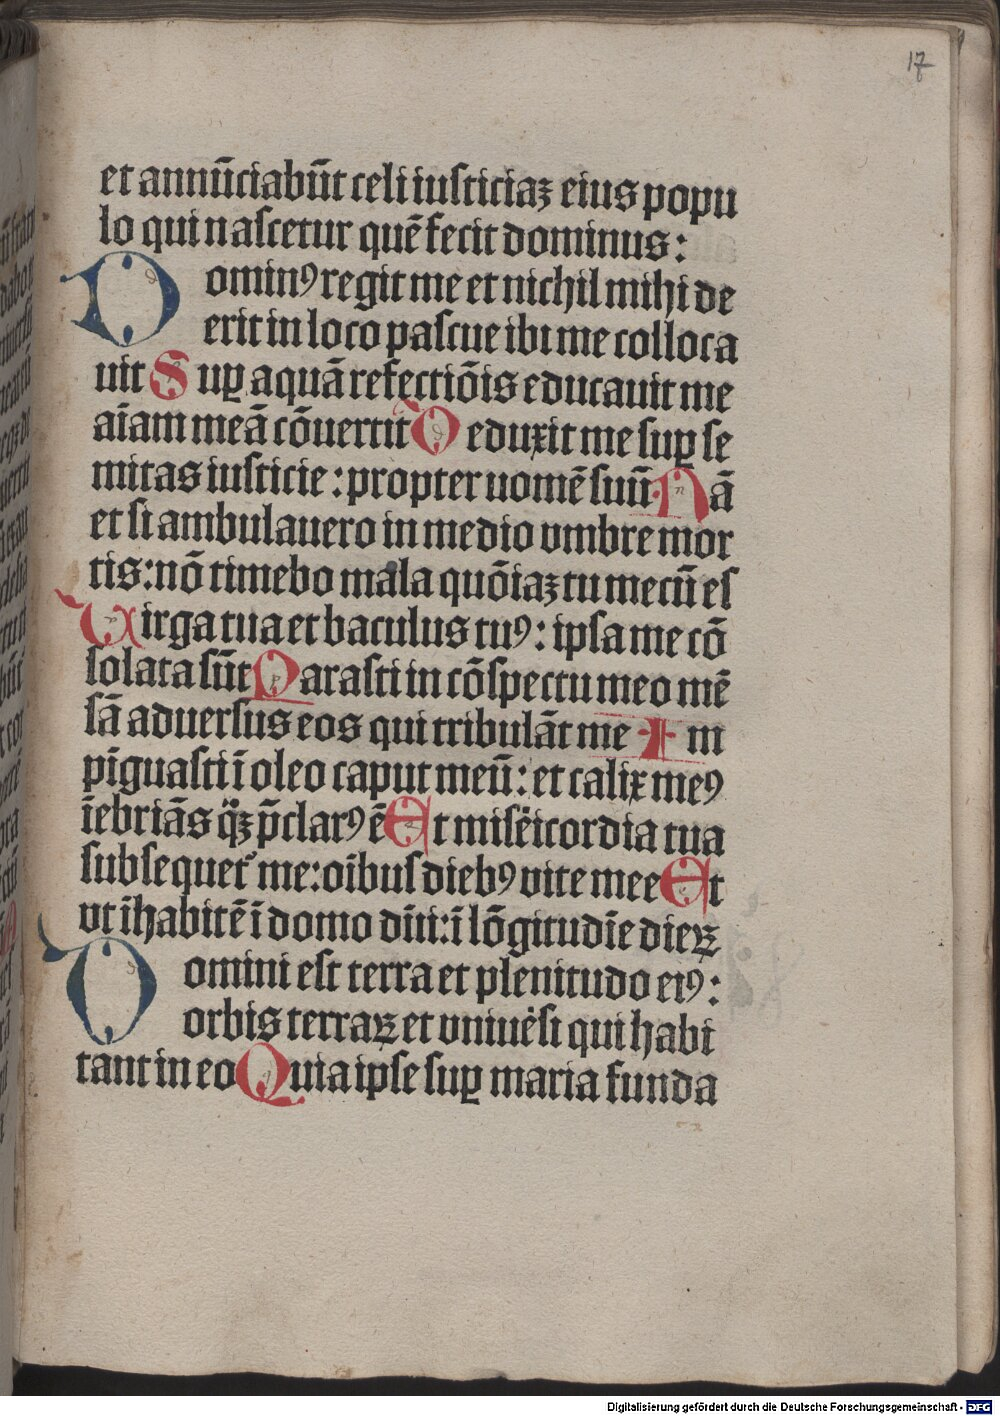 17
et annūciabūt celi iusticiaꝫ eius popu
lo qui nascetur quē fecit dominus:
Dominꝰ regit me et nichil mihi de
erit in loco pascue ibi me colloca
uit Suꝑ aquā refectiōis educauit me
aīam meā cōuertit Deduxit me suꝑ se
mitas iusticie: propter nomē suū Nā
et si ambulauero in medio vmbre mor
tis: nō timebo mala quōiaꝫ tu mecū es
Virga tua et baculus tuꝰ: ipsa me cō
solata sūt Parasti in cōspectu meo mē
sā aduersus eos qui tribulāt me Im
pīguasti ī oleo caput meū: et calix meꝰ
īebriās qͣꝫ p̄clarꝰ ē Et misēicordia tua
subsequet᷑ me: oībus diebꝰ vite mee Et
vt īhabitē ī domo dn̄i: ī lōgitudīe dieꝝ
Domini est terra et plenitudo eiꝰ:
orbis terraꝝ et vniuēsi qui habi
tant in eo Quia ipse suꝑ maria funda
Digitalisierung gefördert durch die Deutsche Forschungsgemeinschaft - DFG